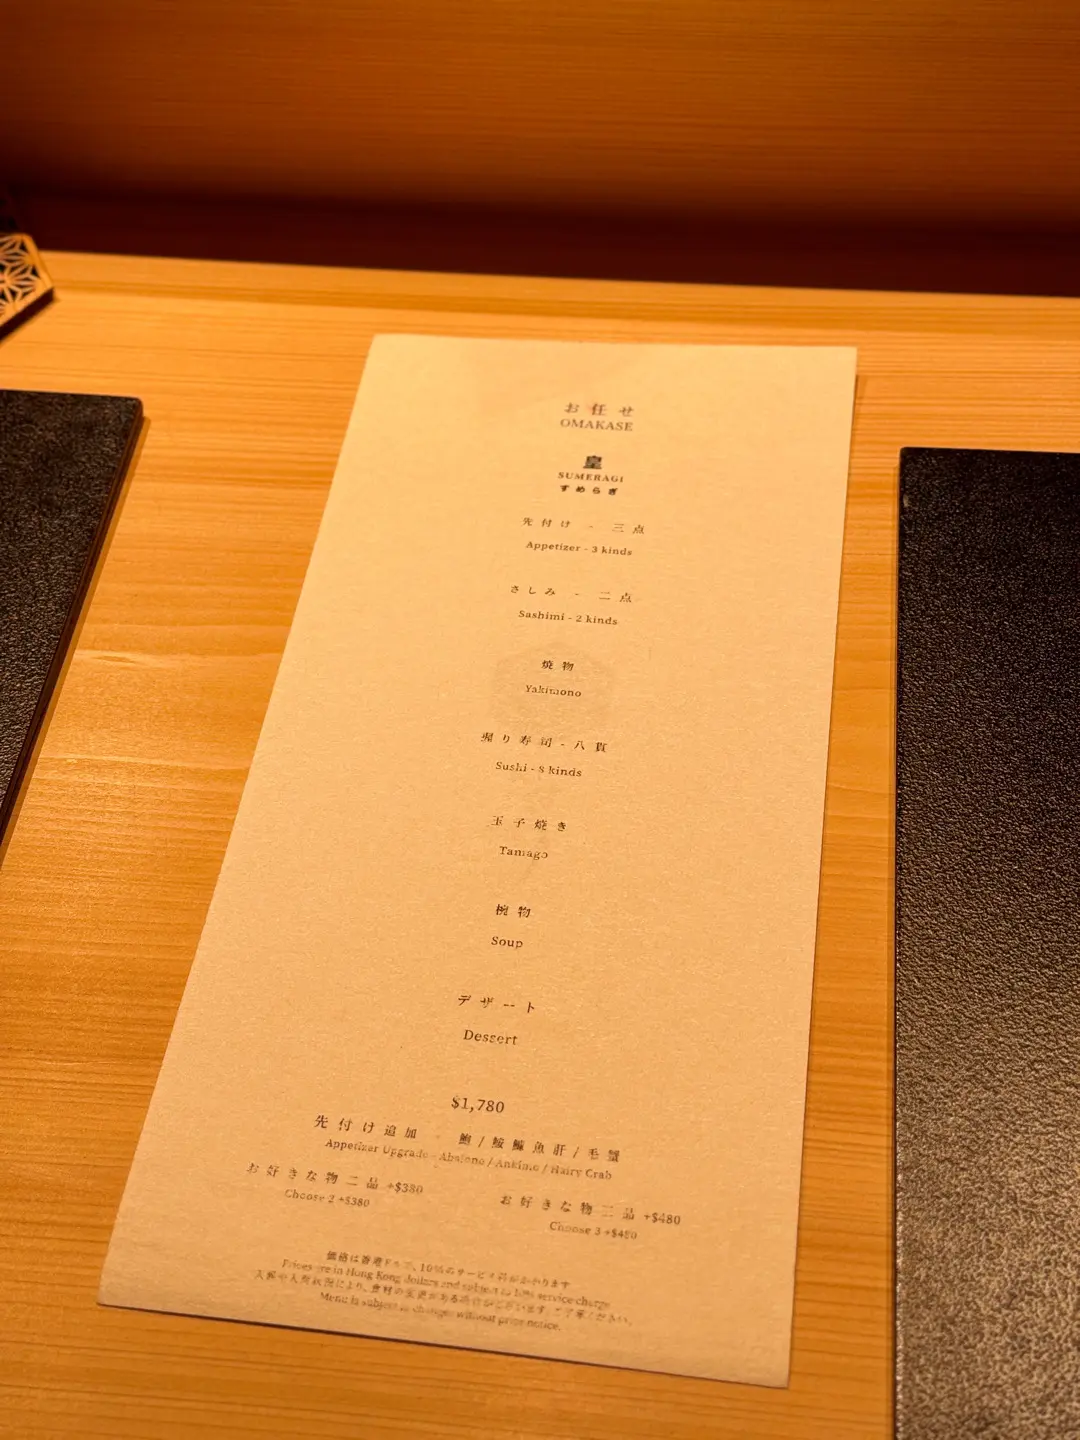 お任せ
OMAKASE
皇
SUMERAGI
すめらぎ
先付け - 三点
Appetizer - 3 kinds
さしみ - 二点
Sashimi - 2 kinds
焼物
Yakimono
握り寿司 - 八貫
Sushi - 8 kinds
玉子焼き
Tamago
椀物
Soup
デザート
Dessert
$1,780
先付け追加 - 鮑 / 鮟鱇魚肝 / 毛蟹
Appetizer Upgrade - Abalone / Ankimo / Hairy Crab
お好きな物二品 +$380
Choose 2 +$380
お好きな物三品 +$480
Choose 3 +$480
価格は香港ドルで、10%のサービス料がかかります
Prices are in Hong Kong dollars and subject to 10% service charge
入荷状況により、食材の変更がある場合がございます。ご了承ください。
Menu is subject to changes without prior notice.